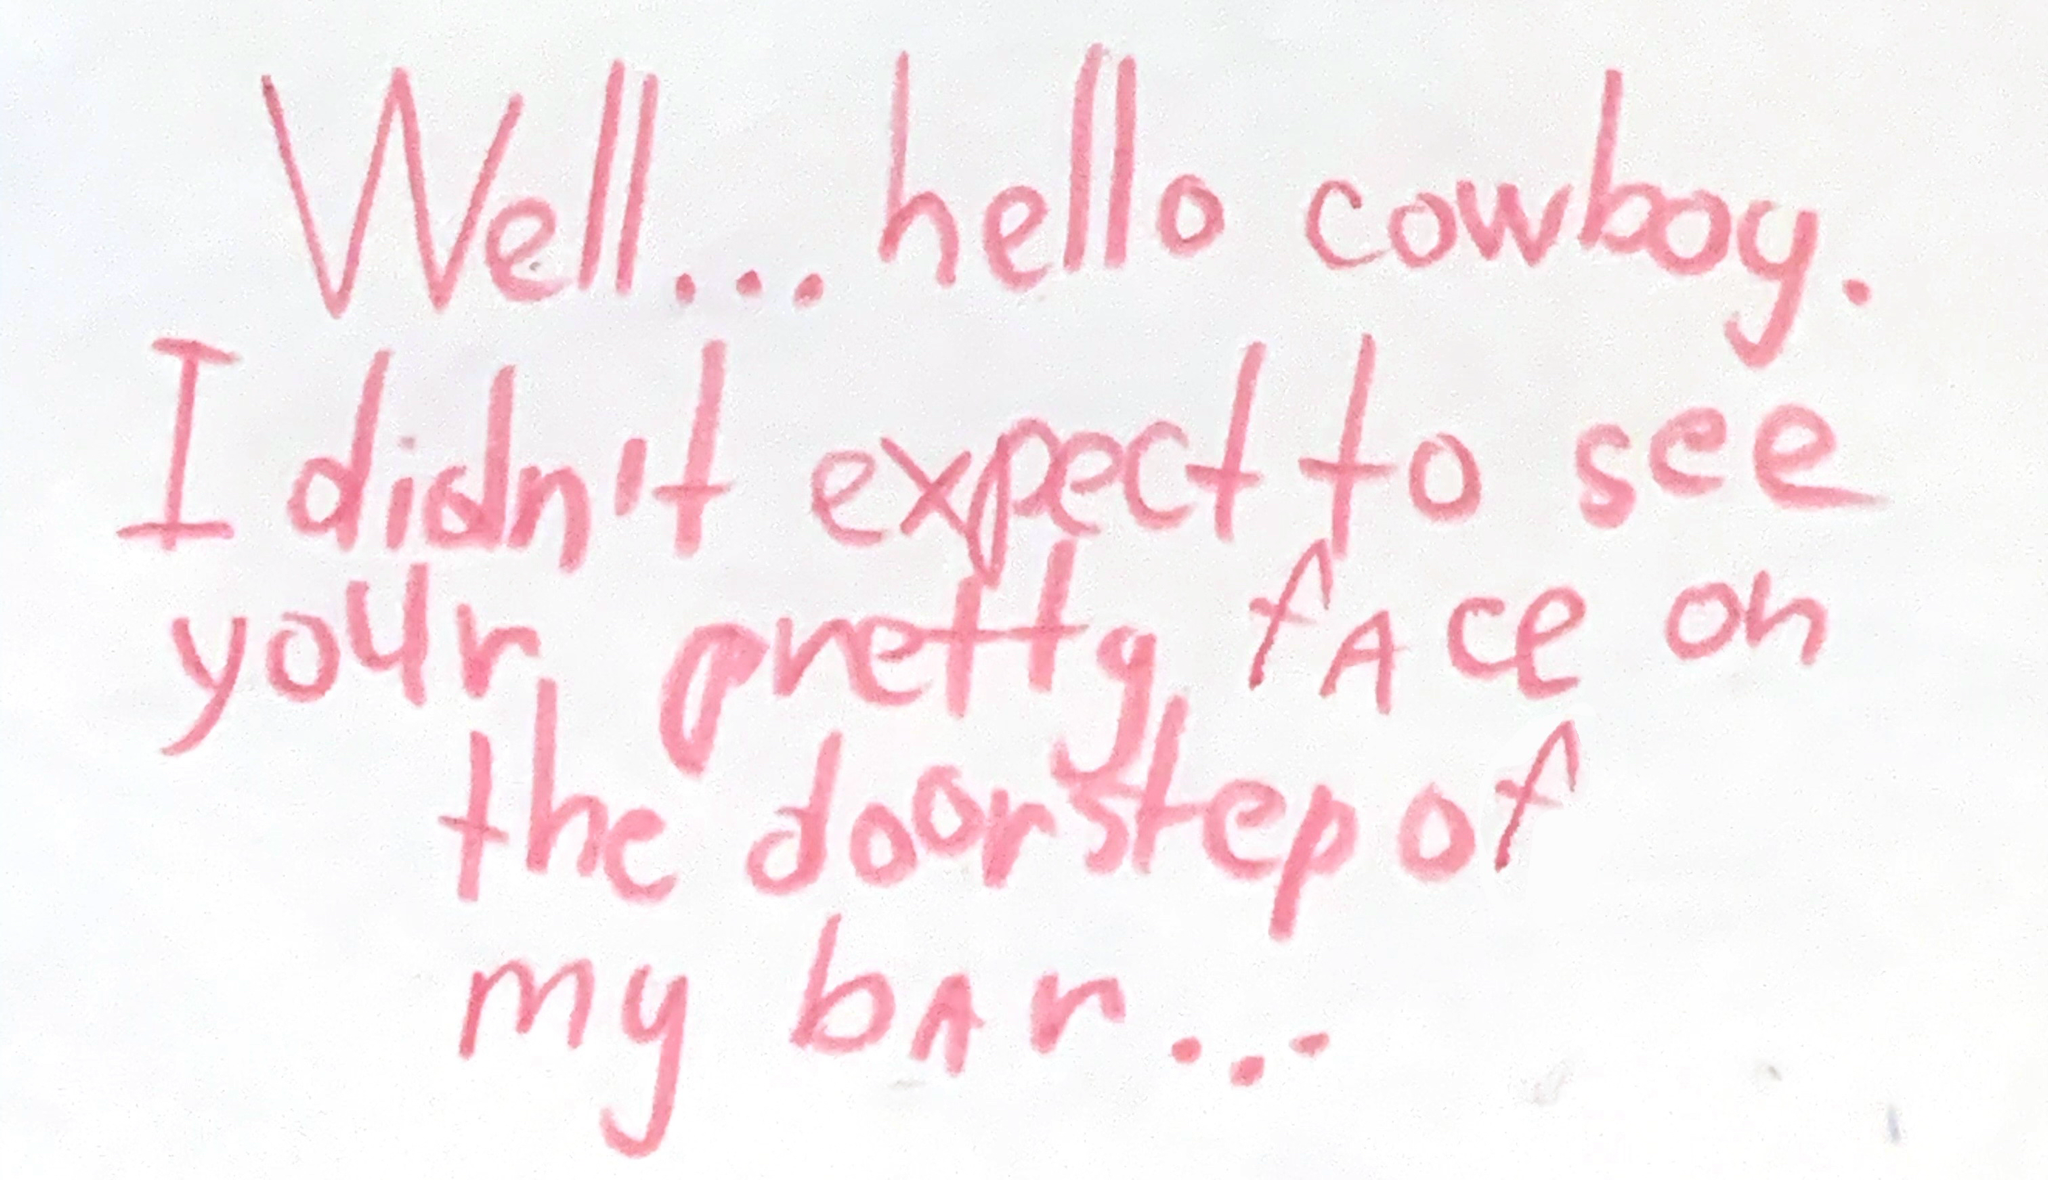 Well... hello cowboy.
I didn't expect to see
your pretty fAce on
the doorstep of
my bAr...